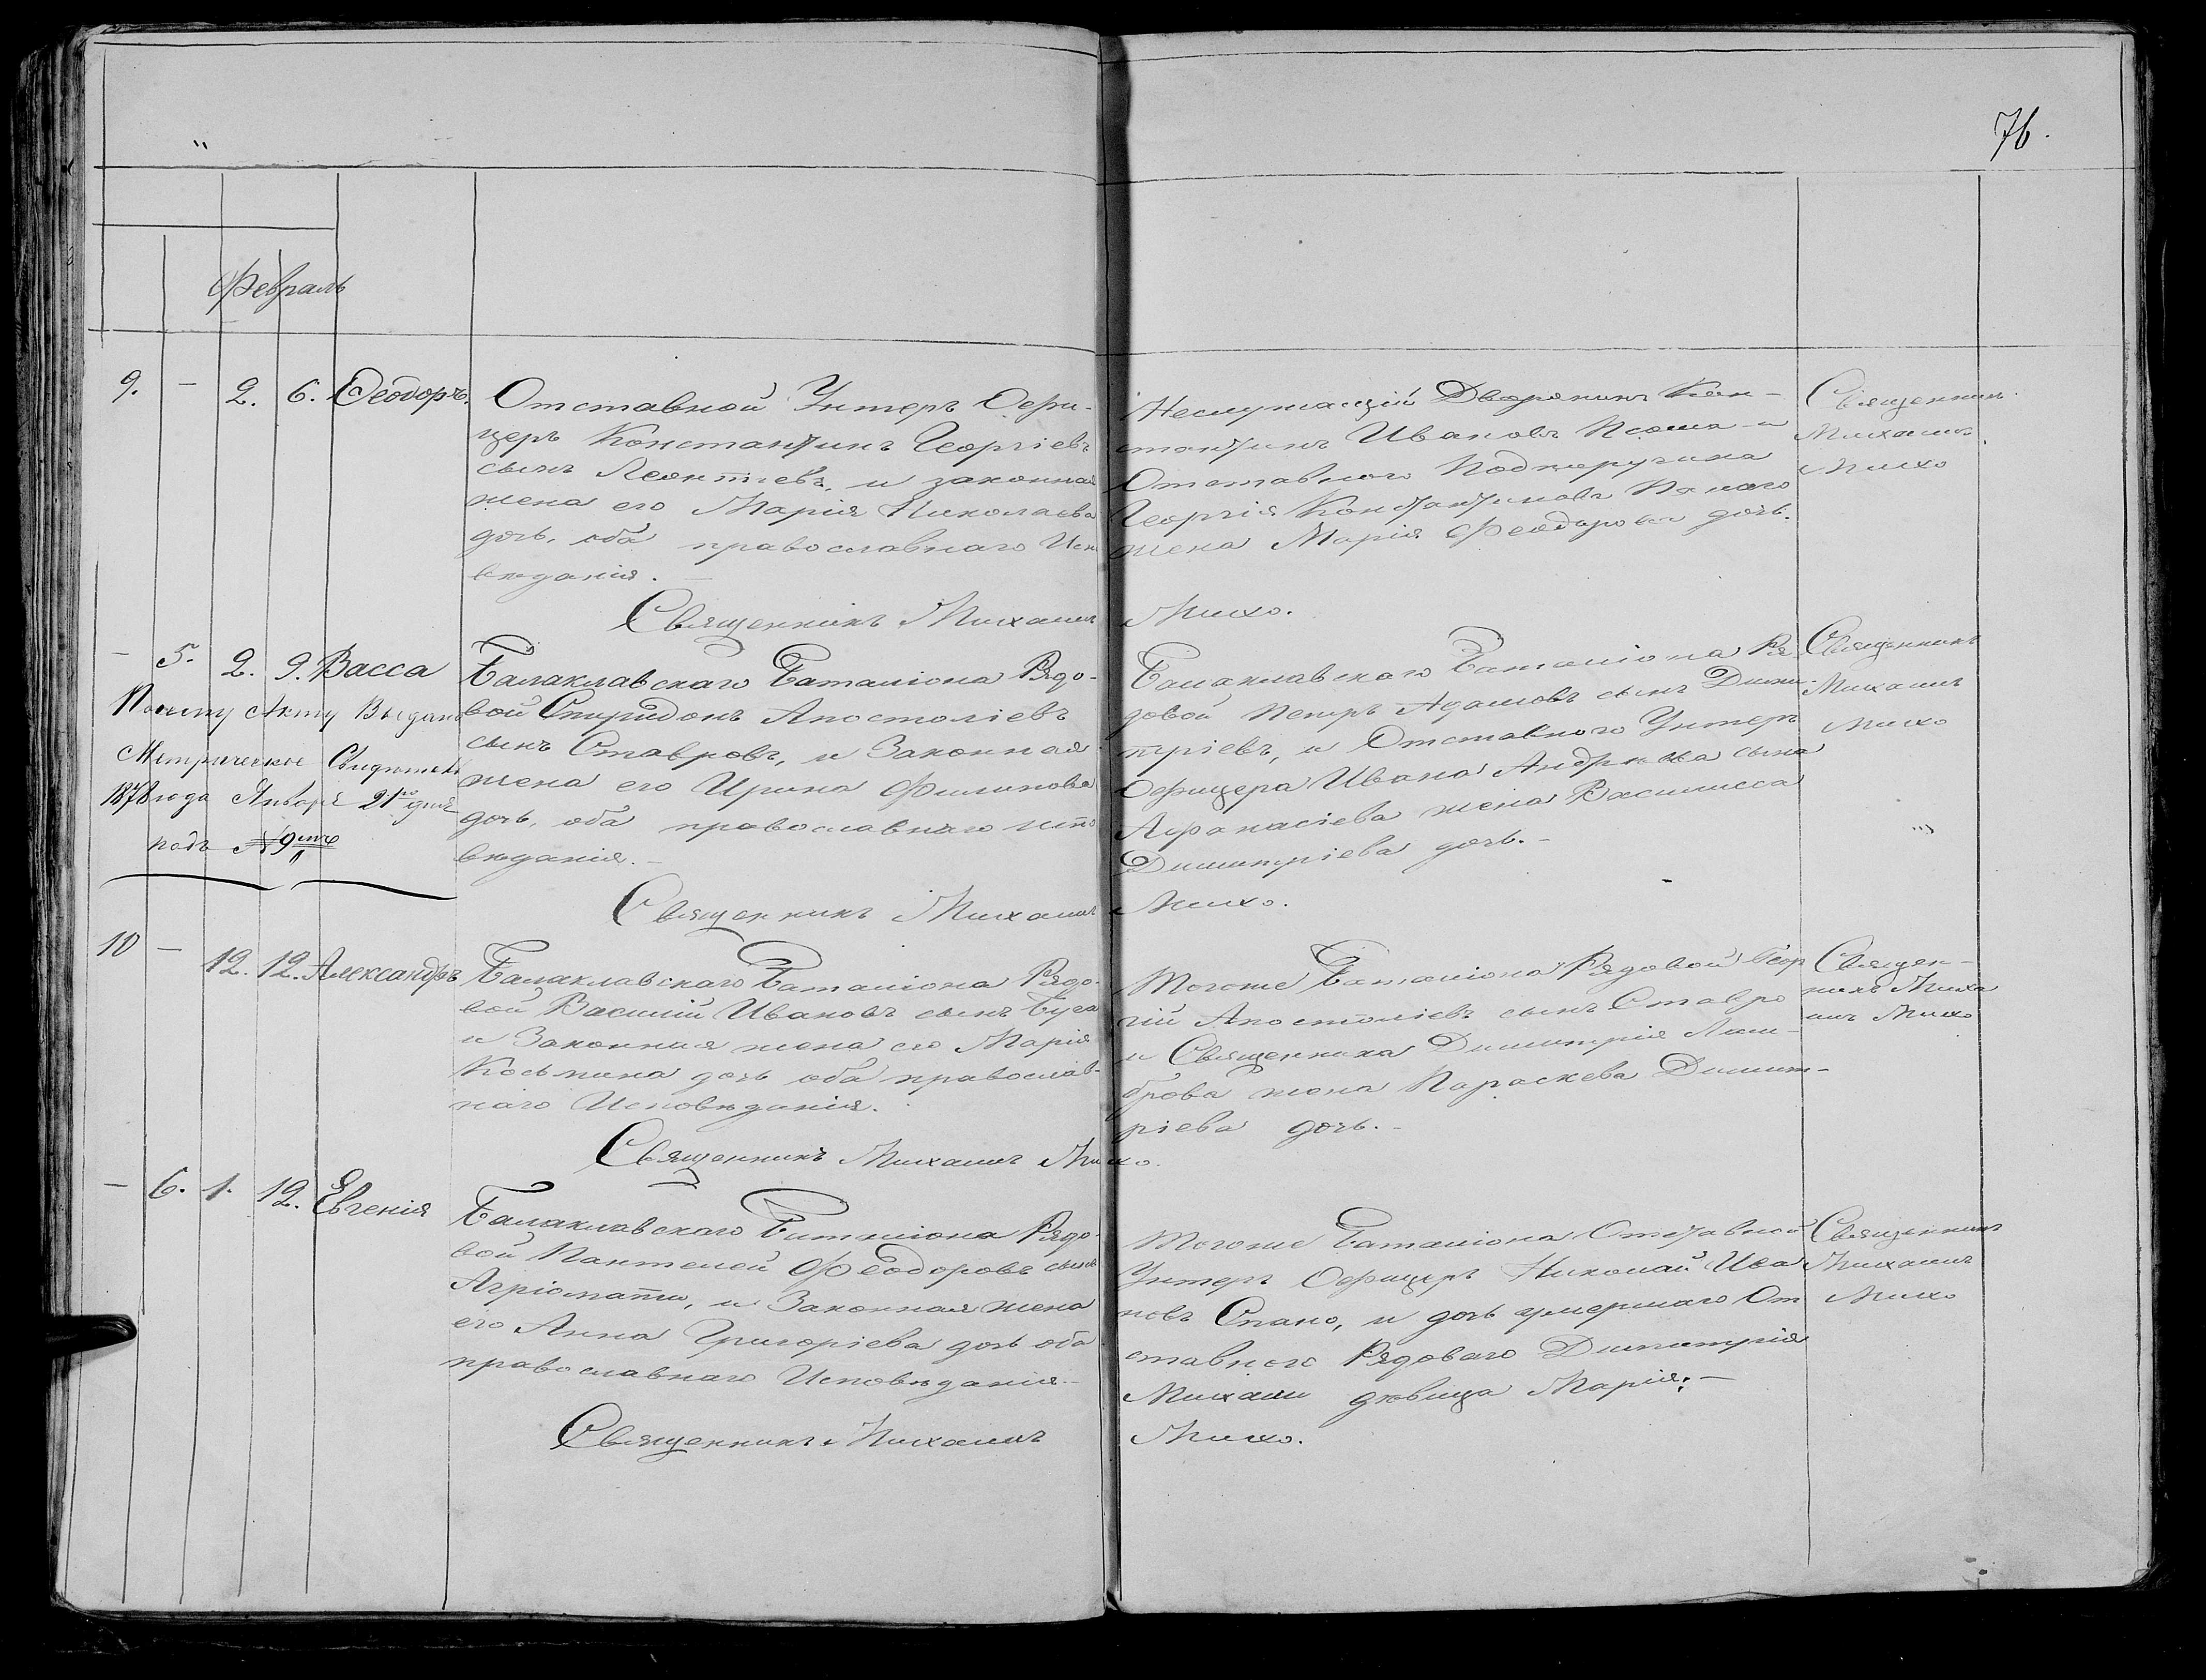 76.
Февраль
9. — 2. 6. Феодоръ.
Отставной Унтеръ Офи-
церъ Константинъ Георгіевъ
сынъ Леонтіевъ, и законная
жена его Марія Николаева
дочь, оба православнаго Исп
вѣданія. —
Священникъ Михаилъ Михо.
Неслужащій Дворянинъ Кон-
стантинъ Ивановъ и
Отставного Подпоручика
Георгія Константинова
жена Марія Феодорова дочь.
Священникъ
Михаилъ
Михо
— 5. 2. 9. Васса
По сему Акту Выдано
Метрическое Свидѣтель
1878 года Января 21го дня
подъ №9мъ
Балаклавскаго Баталіона Рядо-
вой Спиридонъ Апостоліевъ
сынъ Ставровъ, и Законная
жена его Ирина Филипова
дочь, оба православнаго испо
вѣданія. —
Священникъ Михаилъ Михо.
Балаклавскаго Баталіона Ря
довой Петръ Адамовъ сынъ Дими-
тріевъ, и Отставного Унтеръ
Офицера Ивана Андреева сына
Афанасіева жена Василисса
Димитріева дочь. —
Священникъ
Михаилъ
Михо
10 — 12. 12. Александръ
Балаклавскаго Баталіона Рядо-
вой Василій Ивановъ сынъ
и Законная жена его Марія
Косьмина дочь оба православ-
наго Исповѣданія.
Священникъ Михаилъ Михо.
Тогоже Баталіона Рядовой Геор
гій Апостоліевъ сынъ Ставро
и Священника Димитрія Лам-
брова жена Параскева Димит-
ріева дочь. —
Священ-
никъ Миха
илъ Михо
— 6. 1. 12. Евгенія
Балаклавскаго Баталіона Рядо-
вой Пантелей Феодоровъ сынъ
Агріоматти, и Законная жена
его Анна Григоріева дочь оба
православнаго Исповѣданія. —
Священникъ Михаилъ Михо.
Тогоже Баталіона Отставной
Унтеръ Офицеръ Николай Ива
новъ Спано, и дочь умершаго От
ставного Рядоваго Димитрія
Михали дѣвица Марія; —
Священникъ
Михаилъ
Михо